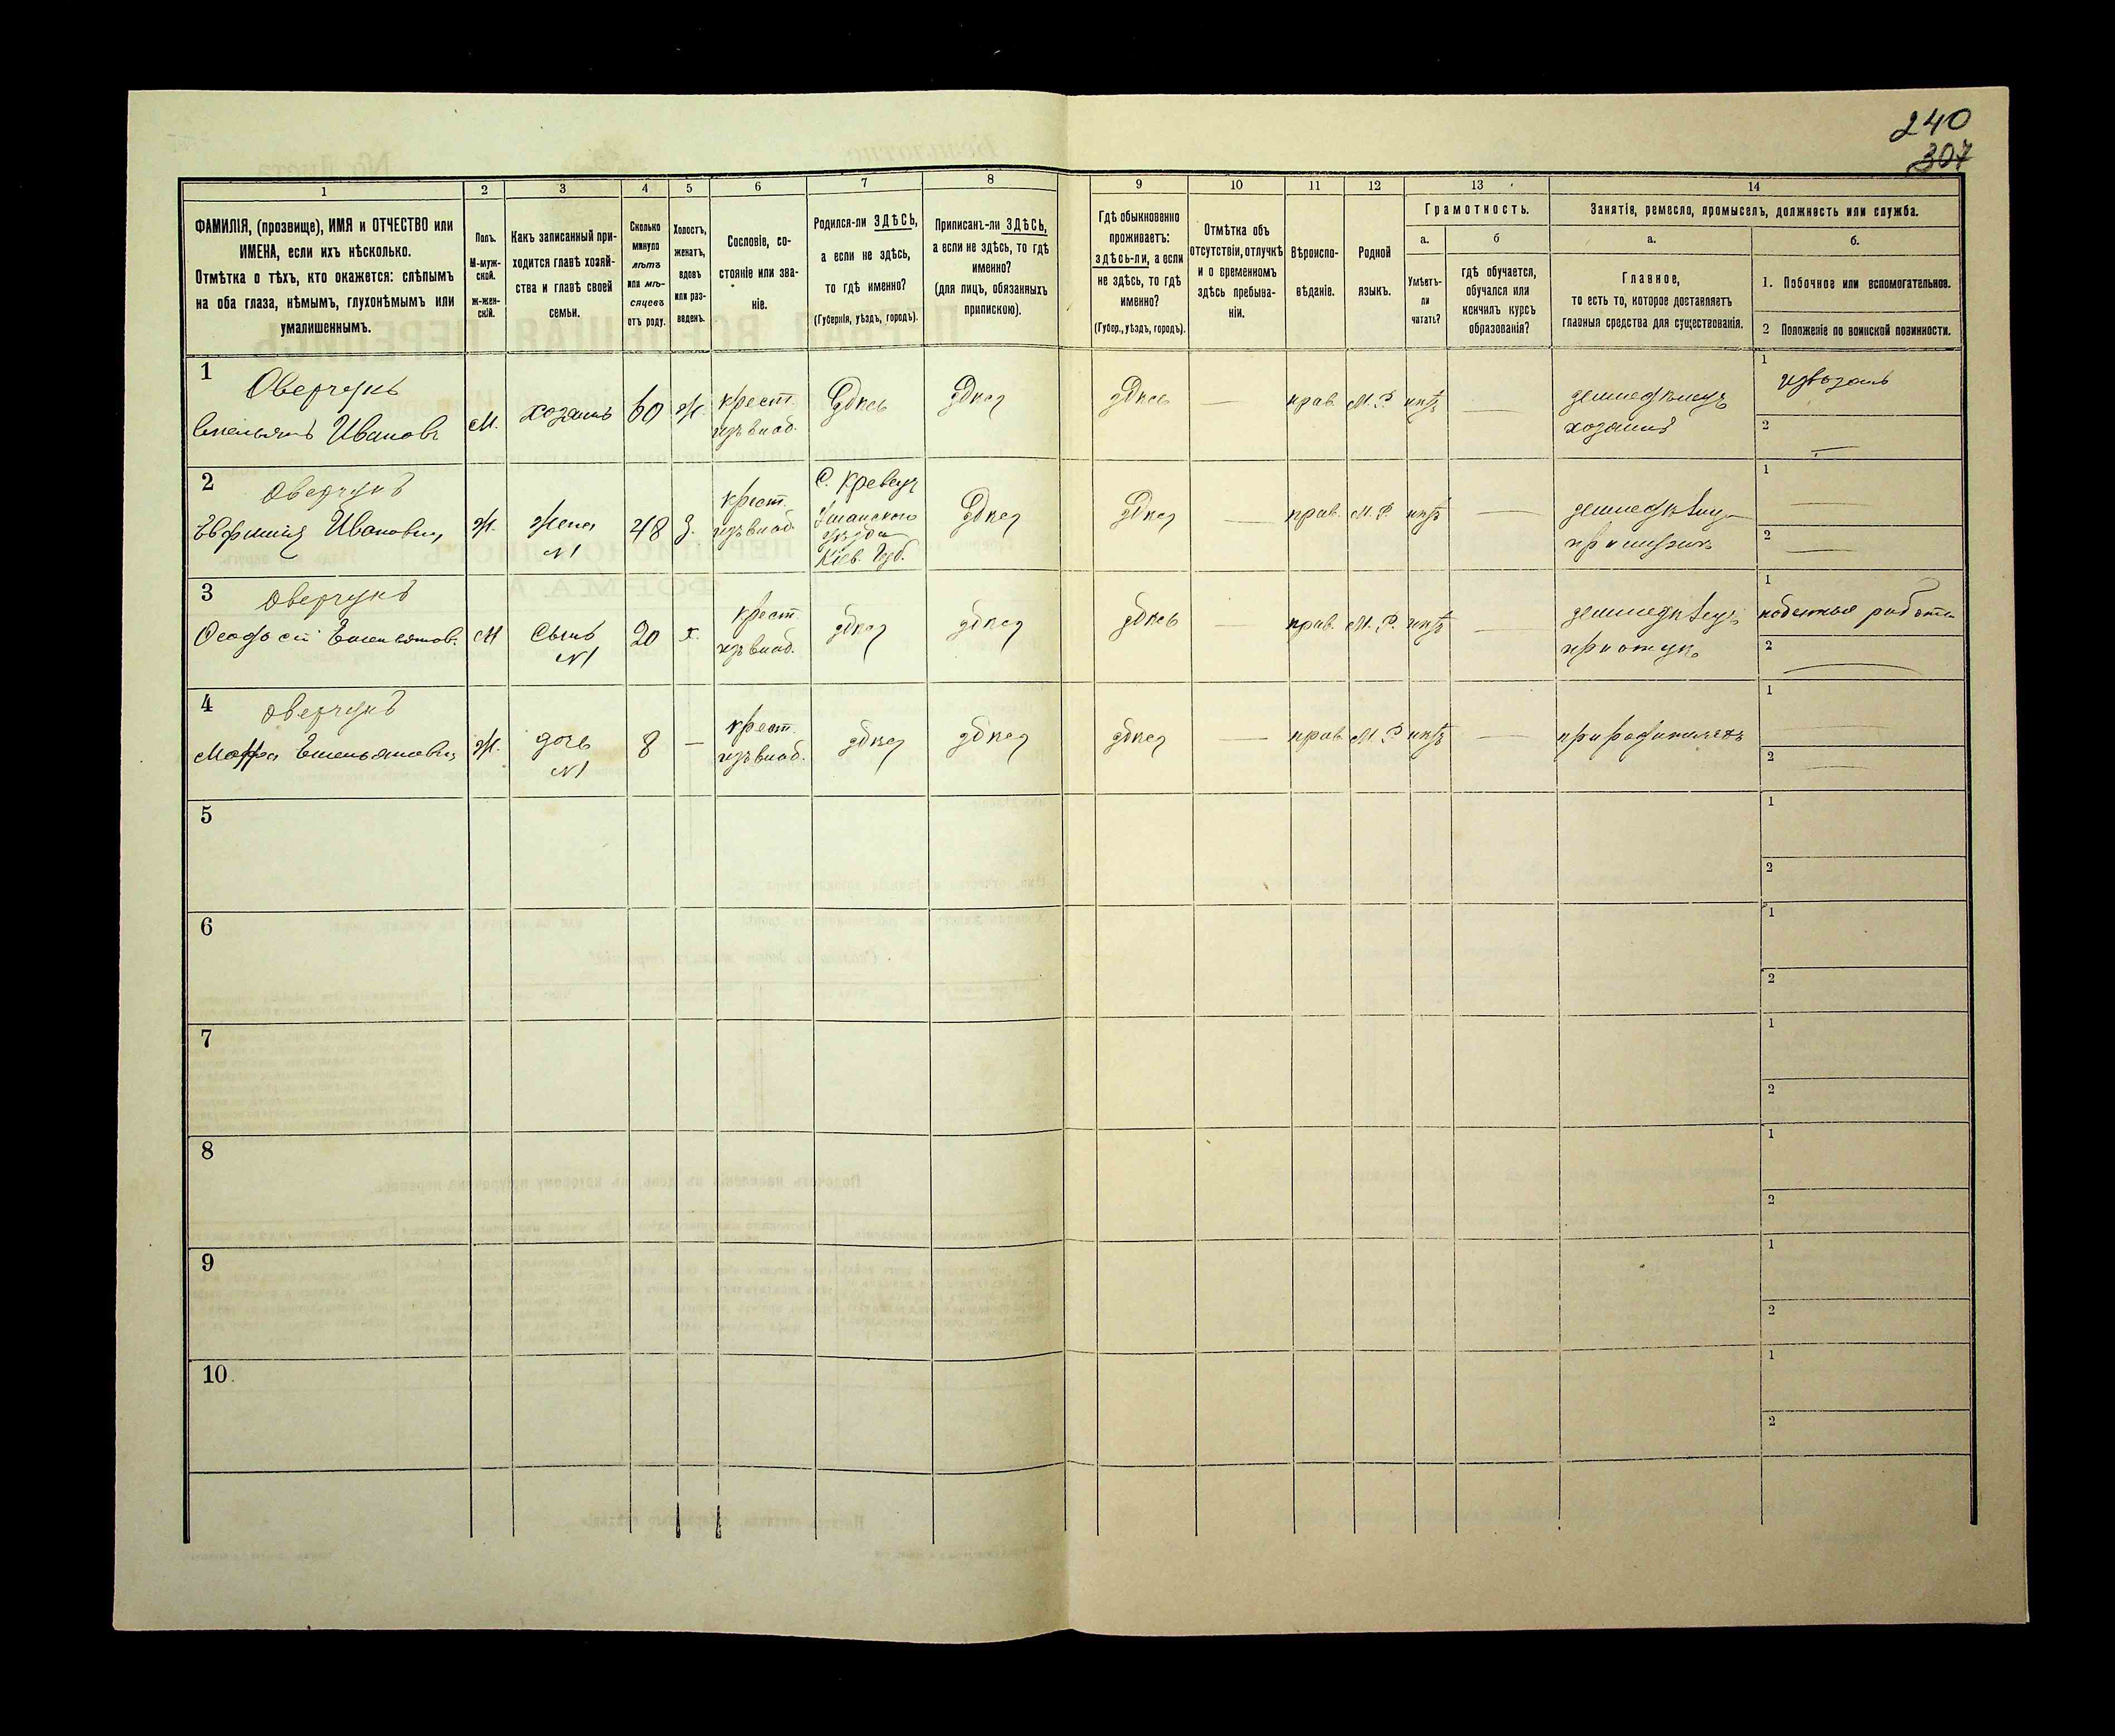 240
307
1
2
3
4
5
6
7
8
9
10
11
12
13
14
ФАМИЛІЯ, (прозвище), ИМЯ и ОТЧЕСТВО или
ИМЕНА, если ихъ нѣсколько.
Отмѣтка о тѣхъ, кто окажется: слѣпымъ
на оба глаза, нѣмымъ, глухонѣмымъ или
умалишеннымъ.
Полъ.
М-муж-
ской.
Ж-жен-
скій.
Какъ записанный при-
ходится главѣ хозяй-
ства и главѣ своей
семьи.
Сколько
минуло
лѣтъ
или мѣ-
сяцевъ
отъ роду.
Холостъ,
женатъ,
вдовъ
или раз-
веденъ.
Сословіе, со-
стояніе или зва-
ніе.
Родился-ли ЗДѢСЬ,
а если не здѣсь,
то гдѣ именно?
(Губернія, уѣздъ, городъ).
Приписанъ-ли ЗДѢСЬ,
а если не здѣсь, то гдѣ
именно?
(для лицъ, обязанныхъ
припискою).
Гдѣ обыкновенно
проживаетъ:
здѣсь-ли, а если
не здѣсь, то гдѣ
именно?
(Губер., уѣздъ, городъ).
Отмѣтка объ
отсутствіи, отлучкѣ
и о временномъ
здѣсь пребыва-
ніи.
Вѣроиспо-
вѣданіе.
Родной
языкъ.
Грамотность.
а.
Умѣетъ-
ли
читать?
б
гдѣ обучается,
обучался или
кончилъ курсъ
образованія?
Занятіе, ремесло, промыселъ, должность или служба.
а.
Главное,
то есть то, которое доставляетъ
главныя средства для существованія.
б.
1. Побочное или вспомогательное.
2 Положеніе по воинской повинности.
1
Оверчукъ
Емельянъ Ивановъ
М.
хозяинъ
60
Ж.
крест.
изъ влад.
Здѣсь
Здѣсь
Здѣсь
—
прав.
М. Р.
нѣтъ
—
земледѣлецъ
хозяинъ
1
извозомъ
2
—
2
Оверчукъ
Евфимія Ивановна
Ж.
жена
N1
48
З.
крест.
изъ влад.
С.
Уманского
уѣзда
Кіев. Губ.
Здѣсь
Здѣсь
—
прав.
М. Р.
нѣтъ
—
при мужѣ
1
—
2
—
3
Оверчукъ
Ѳеодосій Емельяновъ
М
Сынъ
N1
20
х.
крест.
изъ влад.
здѣсь
здѣсь
здѣсь
—
прав.
М. Р.
нѣтъ
—
при отцѣ
1
2
—
4
Оверчукъ
Марфа Емельяновна
Ж.
дочь
N1
8
—
крест.
изъ влад.
здѣсь
здѣсь
здѣсь
—
прав.
М. Р
нѣтъ
—
при родителяхъ
1
—
2
—
5
1
2
6
1
2
7
1
2
8
1
2
9
1
2
10.
1
2